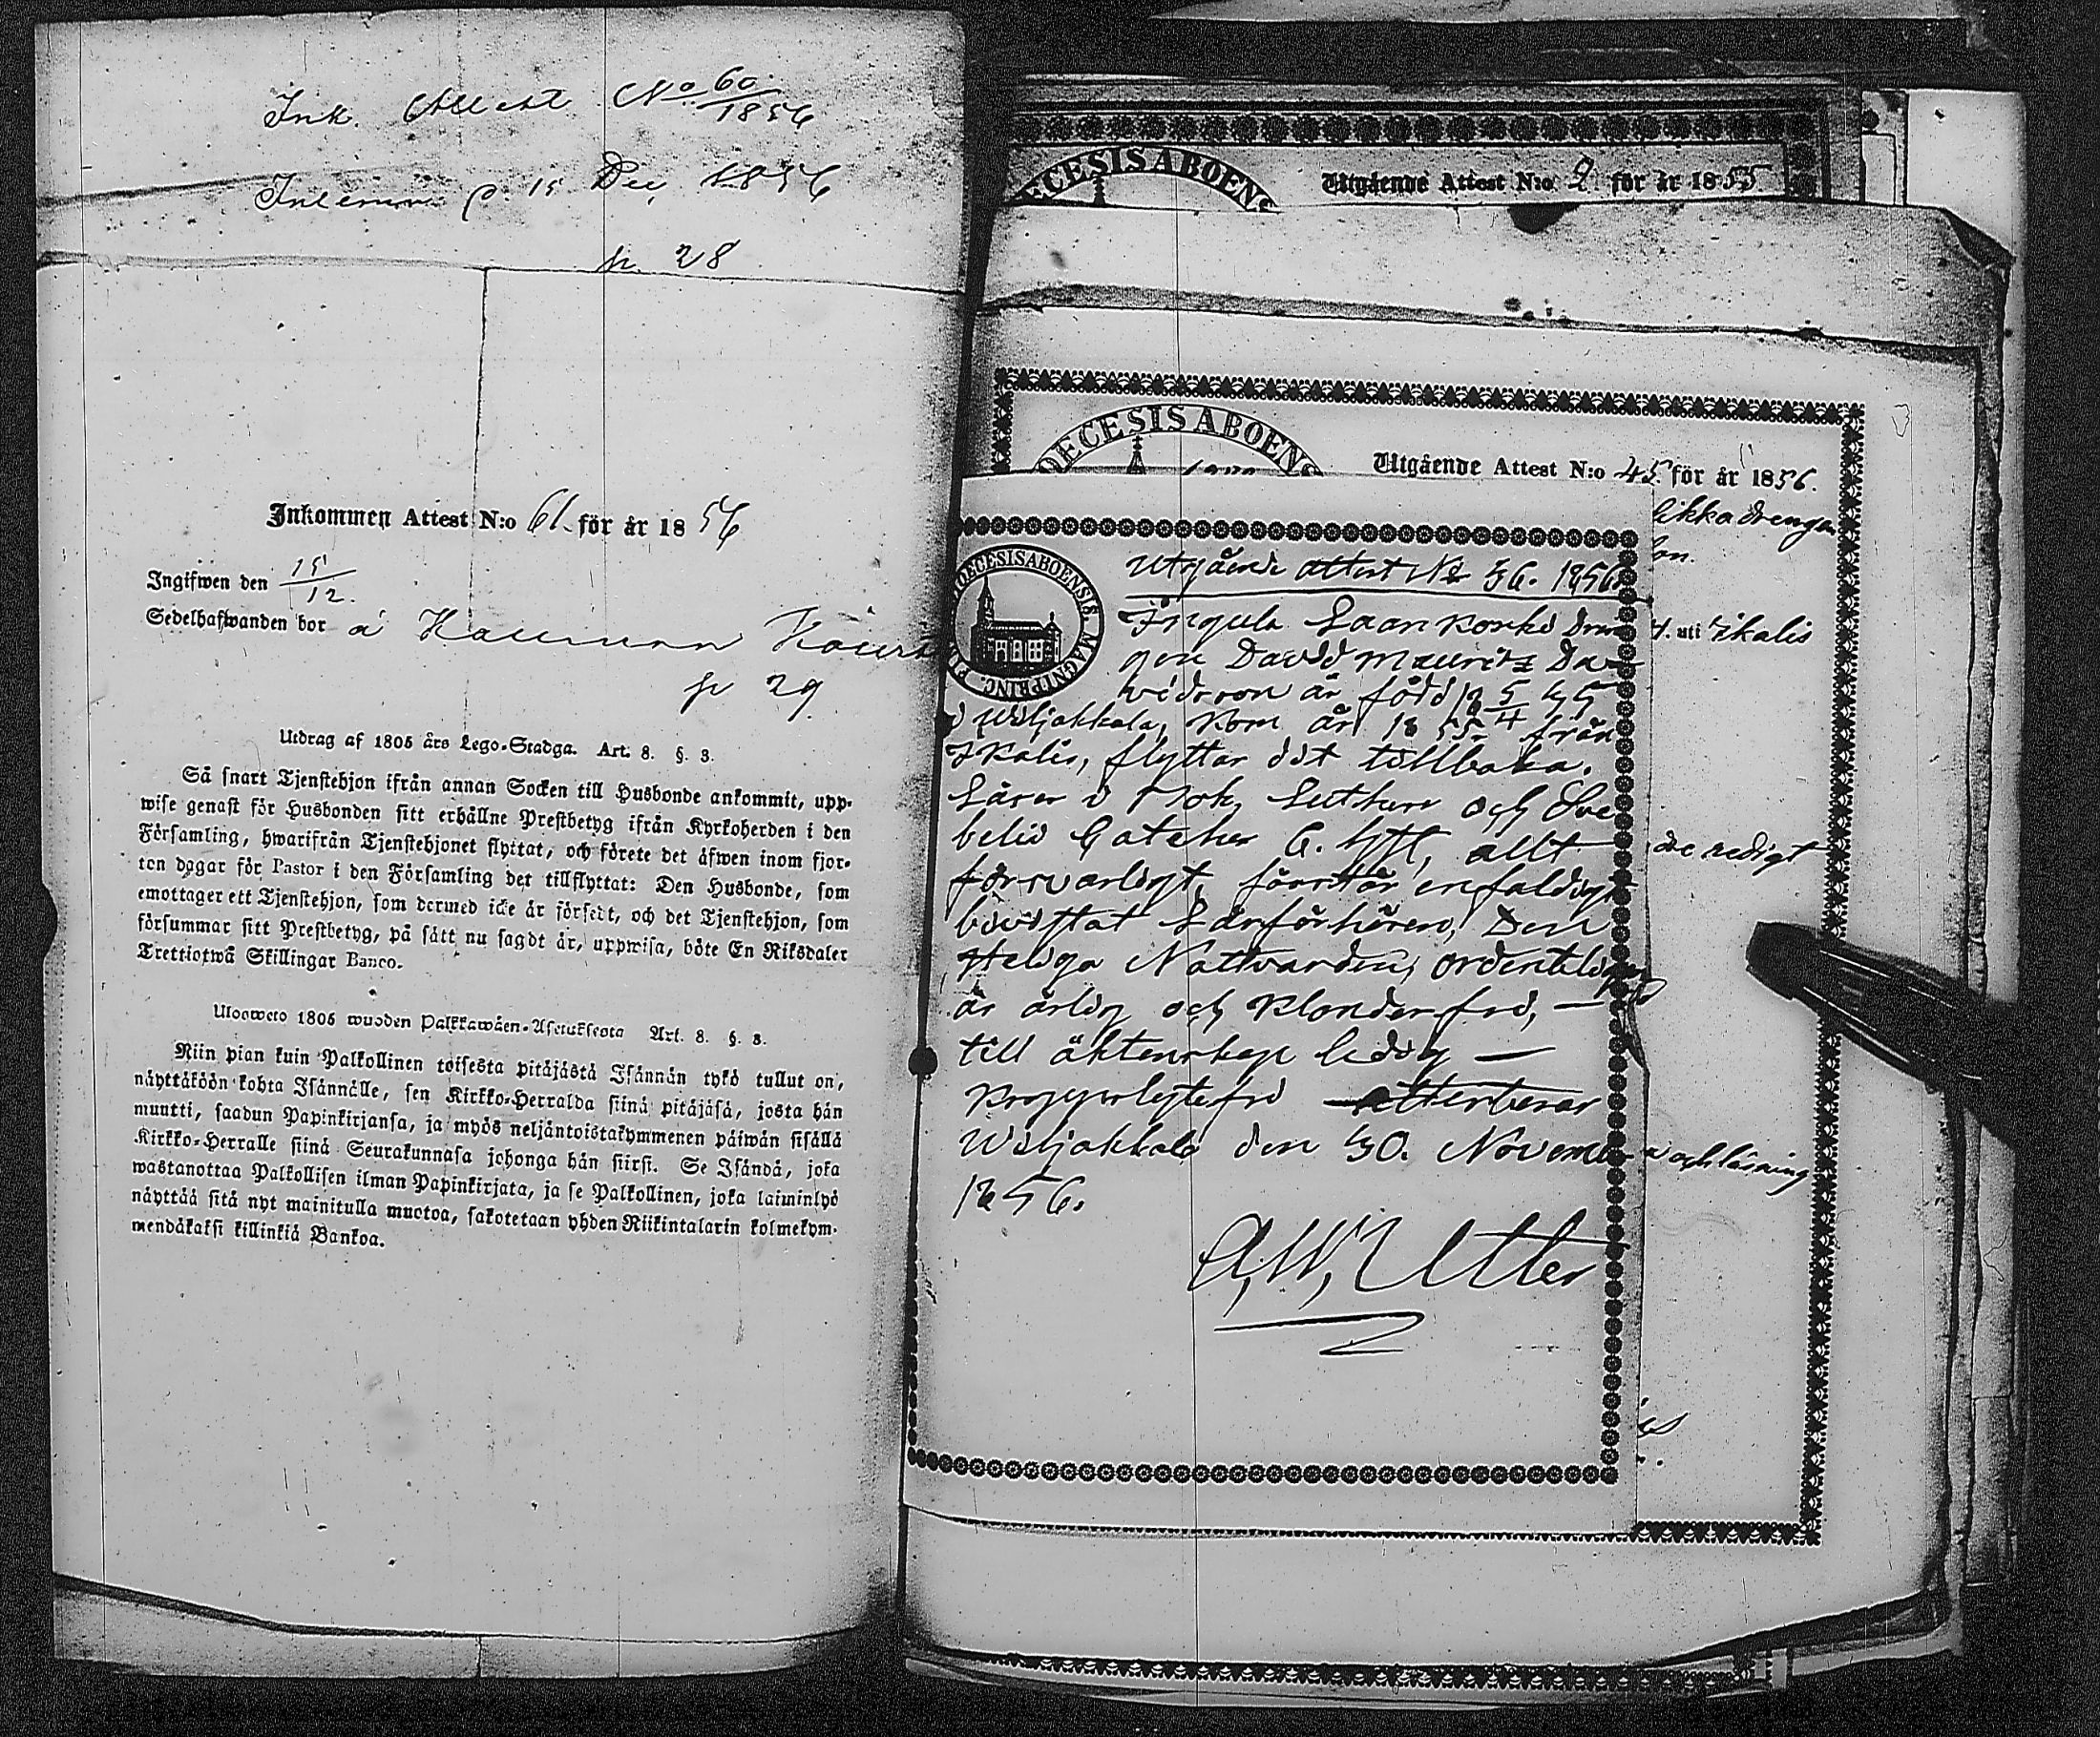 Ink. Attest No 60/1856
p. 15 Dec 1856
p. 28
Inkommen Attest N:o 61 för år 1856
Ingifwen den 15/12.
Sedelhafwanden bor å
p 29
Utdrag af 1805 års Lego-Stadga. Art. 8. §. 3.
Så snart Tjenstehjon ifrån annan Socken till Husbonde ankommit, upp-
wise genast för Husbonden sitt erhållne Prestbetyg ifrån Kyrkoherden i den
Församling, hwarifrån Tjenstehjonet flyttat, och förete det äfwen inom fjor-
ton dagar för Pastor i den Församling det tillflyttat: Den Husbonde, som
emottager ett Tjenstehjon, som dermed icke är försedt, och det Tjenstehjon, som
försummar sitt Prestbetyg, på sätt nu sagdt är, uppwisa, böte En Riksdaler
Trettiotwå Skillingar Banco.
Uloosweto 1805 wuoden Palkkawäen-Asetuksesta Art. 8. §. 3.
Niin pian kuin Palkollinen toisesta pitäjästä Isännän tykö tullut on,
näyttäköön kohta Isännälle, sen Kirkko-Herralda siinä pitäjäsä, josta hän
muutti, saadun Papinkirjansa, ja myös neljäntoistakymmenen päiwän sisällä
Kirkko-Herralle siinä Seurakunnasa johonga hän siirsi. Se Isändä, joka
wastanottaa Palkollisen ilman Papinkirjata, ja se Palkollinen, joka laiminlyö
näyttää sitä nyt mainitulla muotoa, sakotetaan yhden Riikintalarin kolmekym-
mendäkaksi killinkiä Bankoa.
DECESIS ABOENS
Utgående Attest N:o 2 för år 1855
DECESIS ABOENS
Utgående Attest N:o 45 för år 1856.
likka drengen
on.
uti Ikalis
DIOECESIS ABOENSIS. MAGNI PRINC.
Utgående attest No 36. 1856
Ingula Laonkorko Dren
gen David Mauritz Da-
vidsson är född 18 5/4 35
i Wiljakkala, kom år 1855 från
Ikalis, flyttar dit tillbaka.
Läser i bok, Lutheri och Sve
belii Cateches C. hfft, allt
försvarligt, förstår enfaldigt
bivistat Läsförhören, Den
Heliga Nattvarden, ordentligen
är ärlig och klanderfri, —
till äktenskap ledig —
kopporlytefri attesterar
Wiljakkala den 30. November
1856.
A, W, Utter
de redigt
och läsning